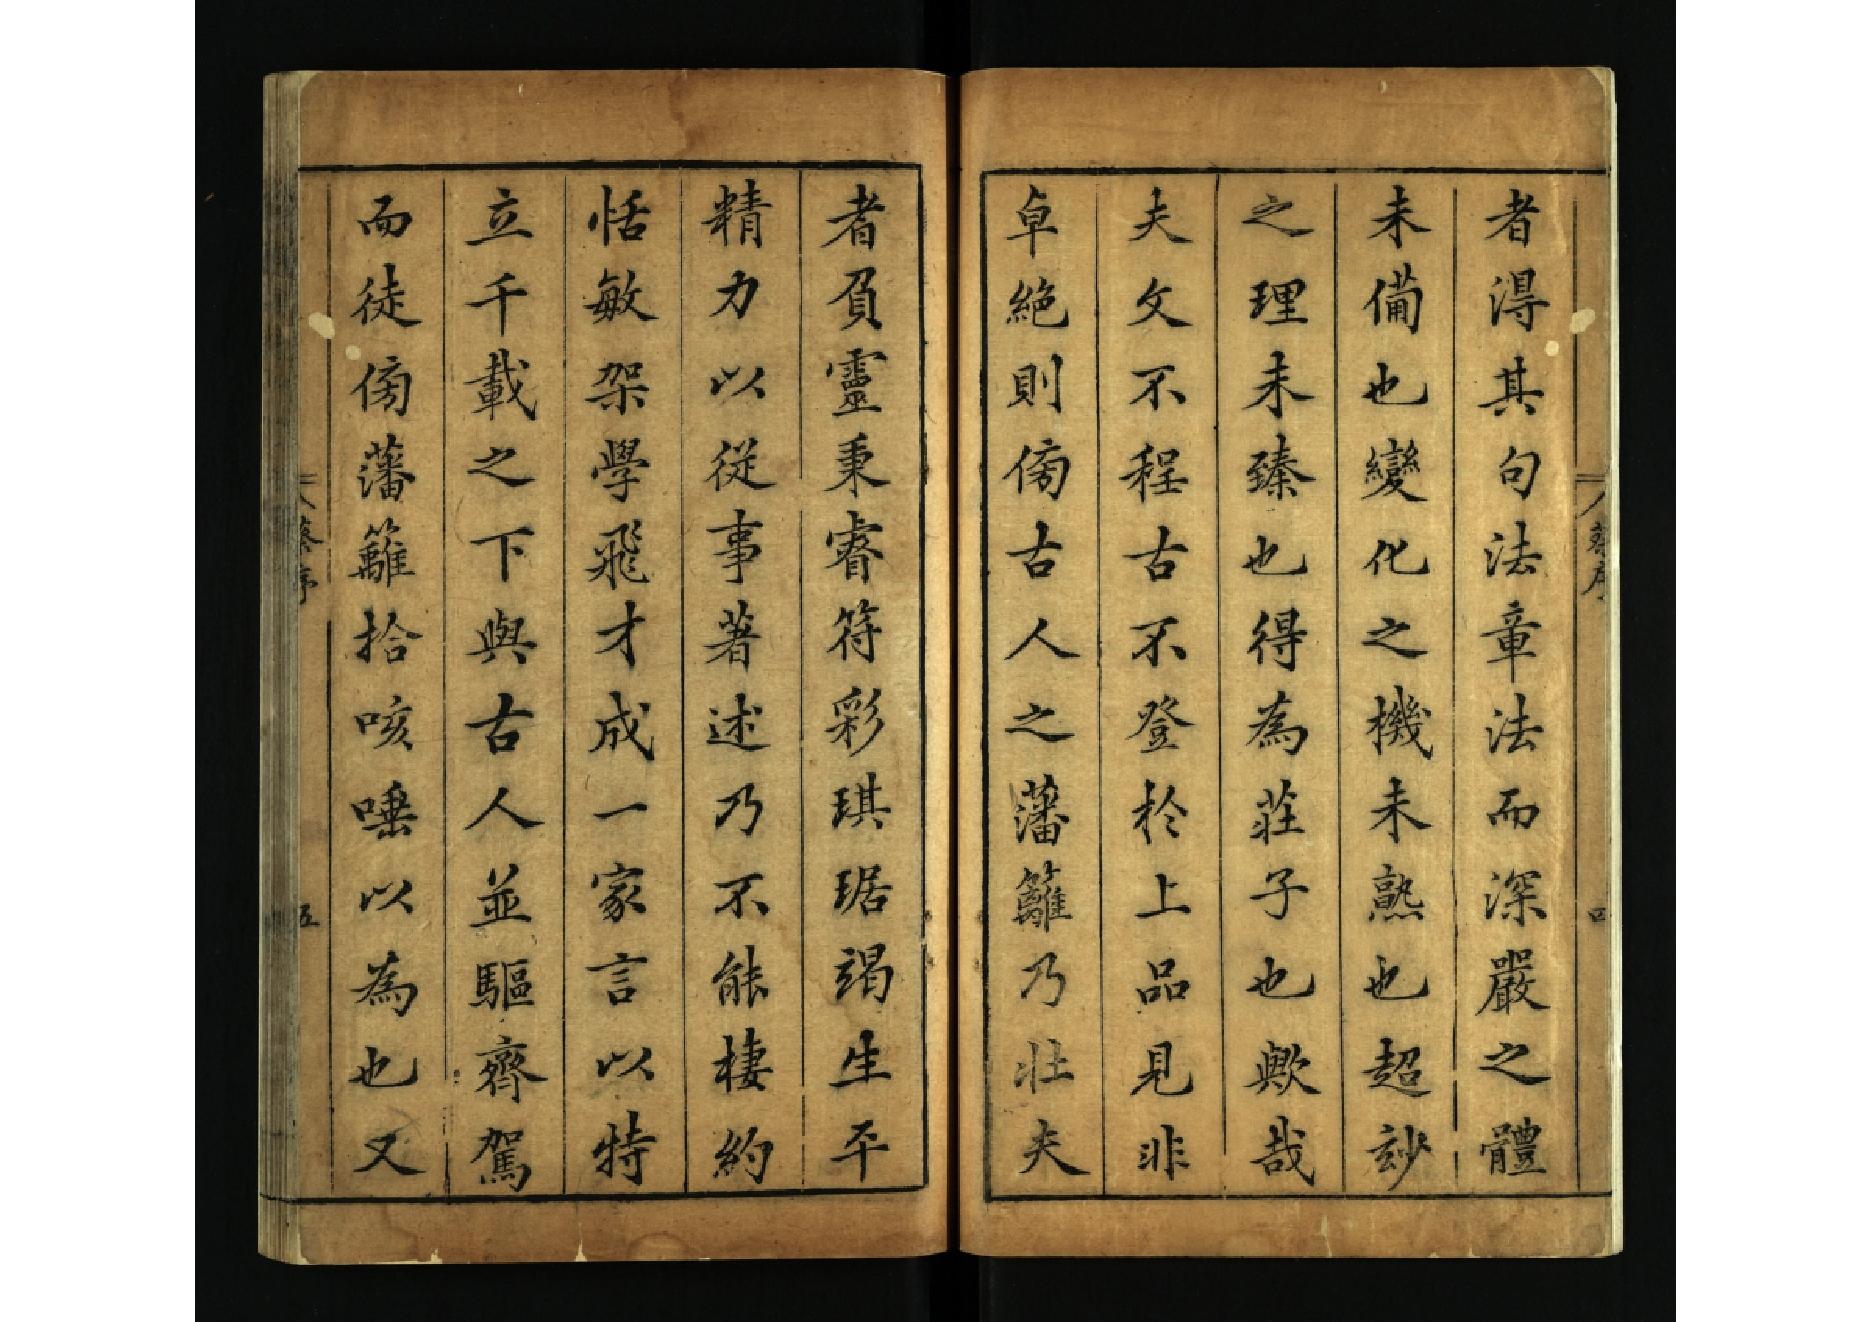 者得其句法章法而深嚴之體
未備也變化之機未熟也超玅
之理未臻也得為莊子也歟哉
夫文不程古不登於上品見非
卓絕則傍古人之藩籬乃壯夫
者負靈秉睿符彩琪琚竭生平
精力以從事著述乃不能棲約
恬敏架學飛才成一家言以特
立千載之下與古人並驅齊駕
而徒傍藩籬拾咳唾以為也又
序
五